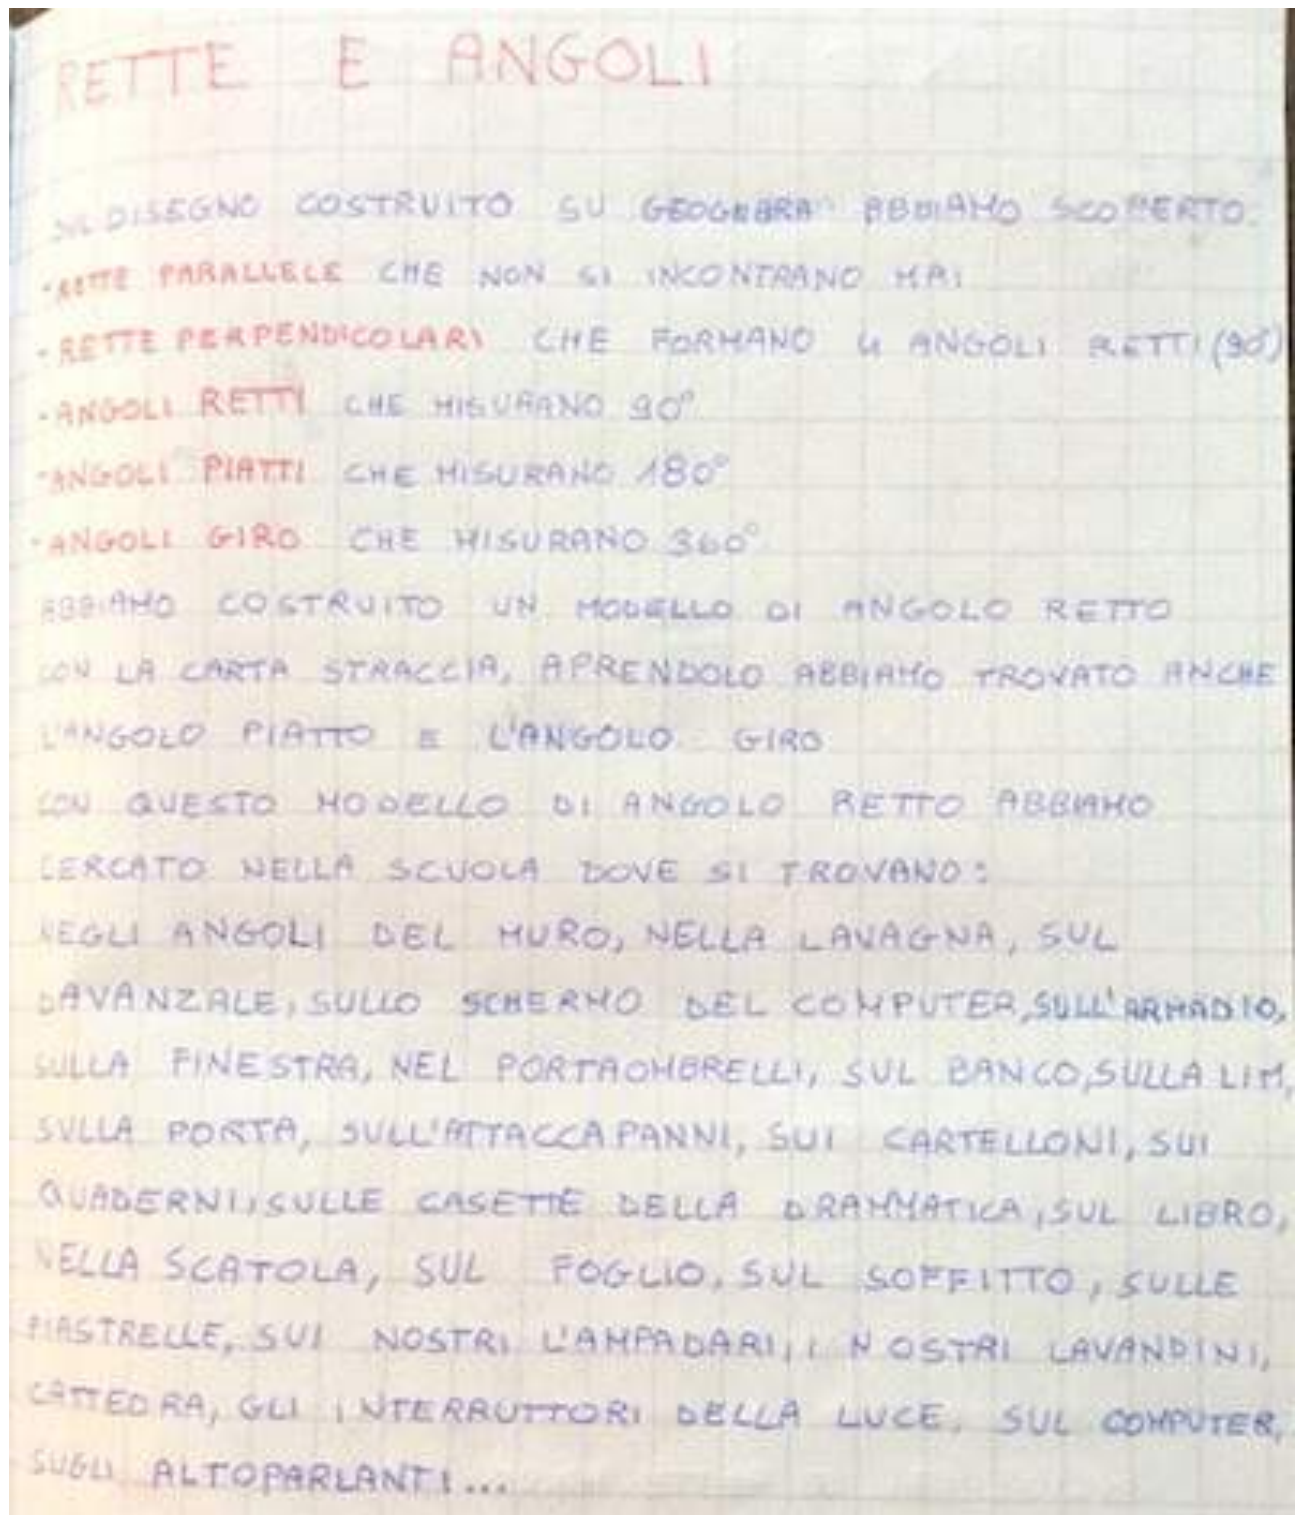 RETTE E ANGOLI
SUL DISEGNO COSTRUITO SU GEOGEBRA ABBIAMO SCOPERTO:
-RETTE PARALLELE CHE NON SI INCONTRANO MAI
-RETTE PERPENDICOLARI CHE FORMANO 4 ANGOLI RETTI (90°)
-ANGOLI RETTI CHE MISURANO 90°
-ANGOLI PIATTI CHE MISURANO 180°
-ANGOLI GIRO CHE MISURANO 360°
ABBIAMO COSTRUITO UN MODELLO DI ANGOLO RETTO
CON LA CARTA STRACCIA, APRENDOLO ABBIAMO TROVATO ANCHE
L'ANGOLO PIATTO E L'ANGOLO GIRO
CON QUESTO MODELLO DI ANGOLO RETTO ABBIAMO
CERCATO NELLA SCUOLA DOVE SI TROVANO:
NEGLI ANGOLI DEL MURO, NELLA LAVAGNA, SUL
DAVANZALE, SULLO SCHERMO DEL COMPUTER, SULL'ARMADIO,
SULLA FINESTRA, NEL PORTAOMBRELLI, SUL BANCO, SULLA LIM,
SULLA PORTA, SULL'ATTACCAPANNI, SUI CARTELLONI, SUI
QUADERNI, SULLE CASETTE DELLA DRAMMATICA, SUL LIBRO,
NELLA SCATOLA, SUL FOGLIO, SUL SOFFITTO, SULLE
PIASTRELLE, SUI NOSTRI L'AMPADARI, I NOSTRI LAVANDINI,
CATTEDRA, GLI INTERRUTTORI DELLA LUCE, SUL COMPUTER,
SUGLI ALTOPARLANTI...